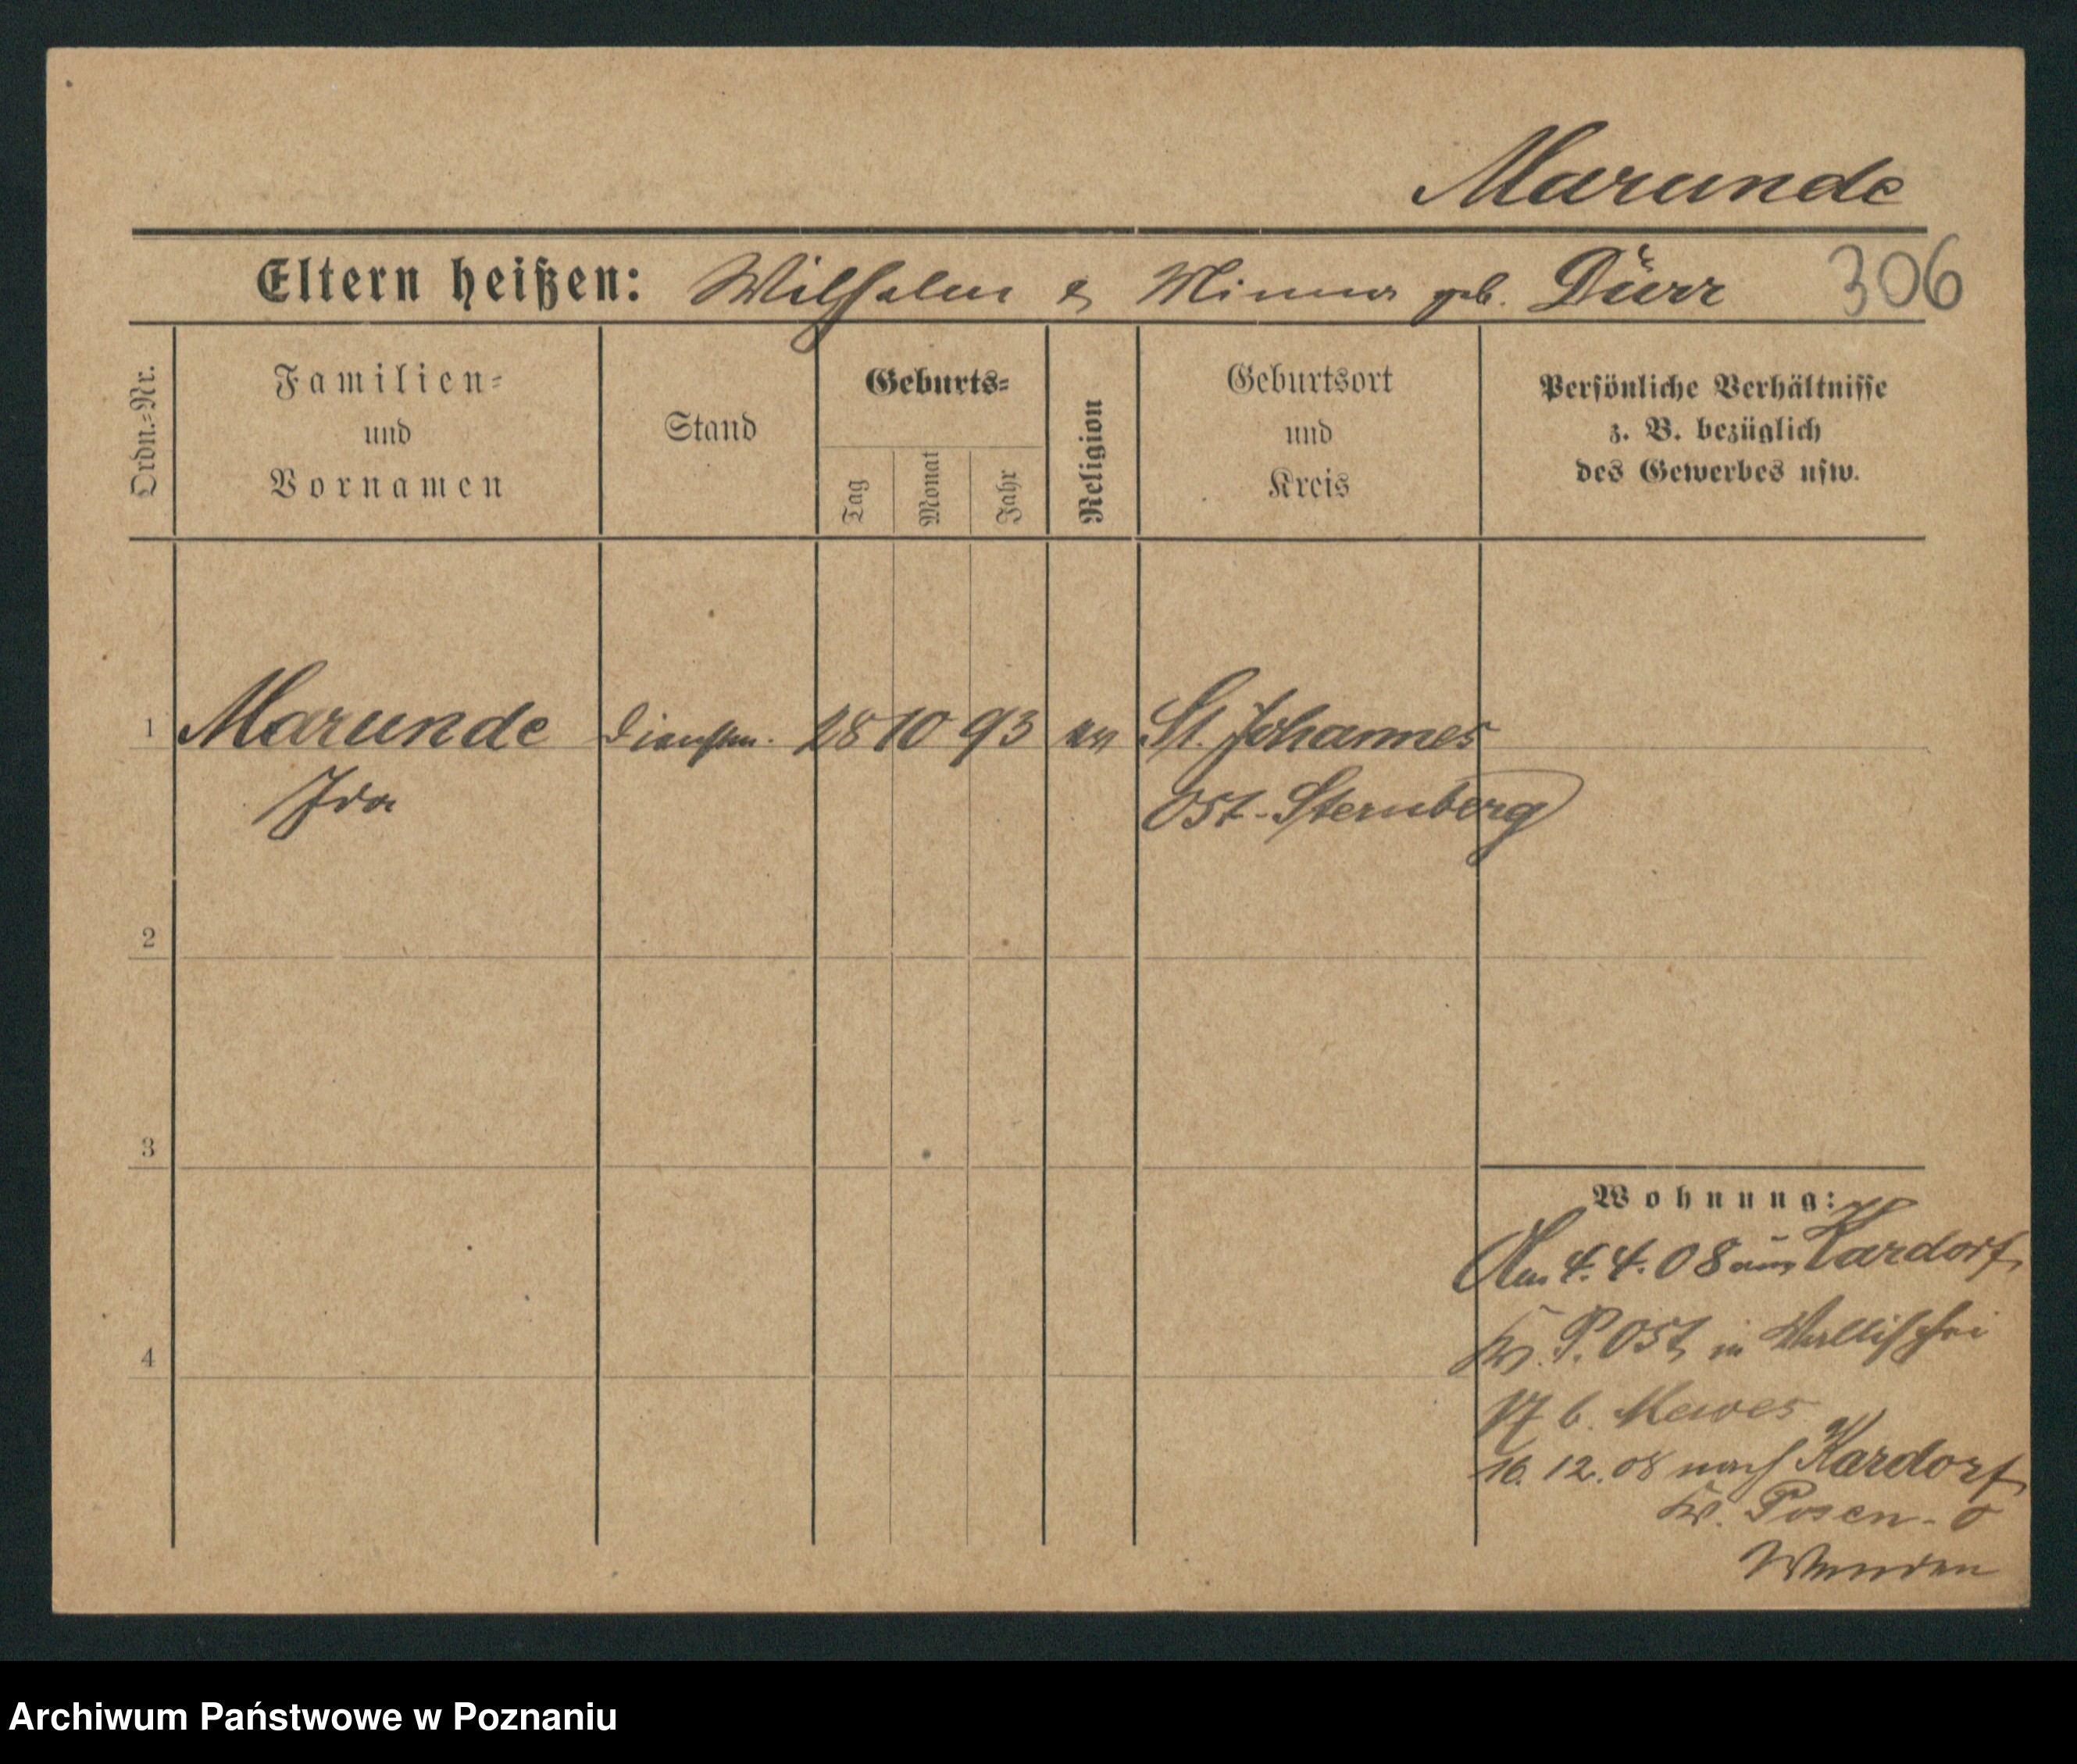 Marunde
Eltern heißen: Wilhelm & Minna geb. Dürr 306
Ordn.=Nr.
Familien=
und
Vornamen
Stand
Geburts=
Tag
Monat
Jahr
Religion
Geburtsort
und
Kreis
Persönliche Verhältnisse
z. B. bezüglich
des Gewerbes usw.
1 Marunde Dienstm. 28 10 93 ev St. Johannes
Ida Ost-Sternberg
2
3
4
Wohnung:
Am 4.4.08 aus Kardorf
Kr. P. Ost, in Wallischei
b. Mewes
16.12.08 nach Kardorf
Kr. Posen-O
Archiwum Państwowe w Poznaniu